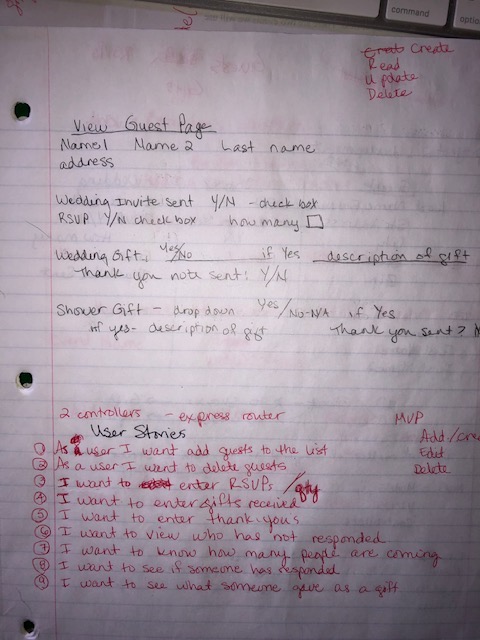 command
optio
Create
Read
Update
Delete
View Guest Page
Name1 Name 2 Last name
address
Wedding Invite sent Y/N - check box
RSVP Y/N check box how many
Wedding Gift: Yes/No if Yes description of gift
Thank you note sent: Y/N
Shower Gift - drop down Yes/No-N/A if Yes
if yes- description of gift Thank you sent? N
2 controllers - express router MVP
User Stories Add/crea
① As a user I want add guests to the list Edit
② As a user I want to delete guests Delete
③ I want to enter RSVPs /qty
④ I want to enter gifts received
⑤ I want to enter thank yous
⑥ I want to view who has not responded
⑦ I want to know how many people are coming
⑧ I want to see if someone has responded
⑨ I want to see what someone gave as a gift